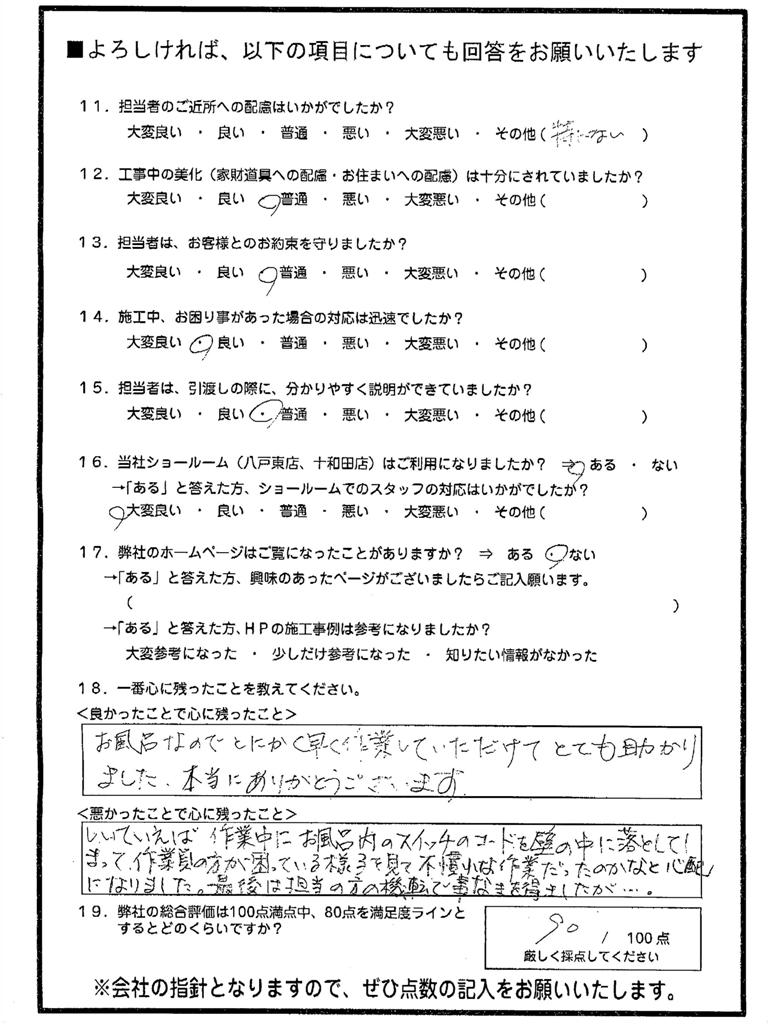 ■よろしければ、以下の項目についても回答をお願いいたします
11．担当者のご近所への配慮はいかがでしたか？
大変良い ・ 良い ・ 普通 ・ 悪い ・ 大変悪い ・ その他( 特にない )
12．工事中の美化（家財道具への配慮・お住まいへの配慮）は十分にされていましたか？
大変良い ・ 良い ・ 普通 ・ 悪い ・ 大変悪い ・ その他( )
13．担当者は、お客様とのお約束を守りましたか？
大変良い ・ 良い ・ 普通 ・ 悪い ・ 大変悪い ・ その他( )
14．施工中、お困り事があった場合の対応は迅速でしたか？
大変良い ・ 良い ・ 普通 ・ 悪い ・ 大変悪い ・ その他( )
15．担当者は、引渡しの際に、分かりやすく説明ができていましたか？
大変良い ・ 良い ・ 普通 ・ 悪い ・ 大変悪い ・ その他( )
16．当社ショールーム（八戸東店、十和田店）はご利用になりましたか？ ⇒ ある ・ ない
→「ある」と答えた方、ショールームでのスタッフの対応はいかがでしたか？
大変良い ・ 良い ・ 普通 ・ 悪い ・ 大変悪い ・ その他( )
17．弊社のホームページはご覧になったことがありますか？ ⇒ ある ・ ない
→「ある」と答えた方、興味のあったページがございましたらご記入願います。
( )
→「ある」と答えた方、ＨＰの施工事例は参考になりましたか？
大変参考になった ・ 少しだけ参考になった ・ 知りたい情報がなかった
18．一番心に残ったことを教えてください。
＜良かったことで心に残ったこと＞
お風呂なのでとにかく早く作業していただけてとても助かり
ました。本当にありがとうございます
＜悪かったことで心に残ったこと＞
しいていえば 作業中にお風呂内のスイッチのコードを壁の中に落としてし
まって、作業員の方が困っている様子を見て不慣れな作業だったのかなと心配
になりました。最後は担当の方の機転で事なきを得ましたが…。
19．弊社の総合評価は100点満点中、80点を満足度ラインと
するとどのくらいですか？
90 / 100点
厳しく採点してください
※会社の指針となりますので、ぜひ点数の記入をお願いいたします。